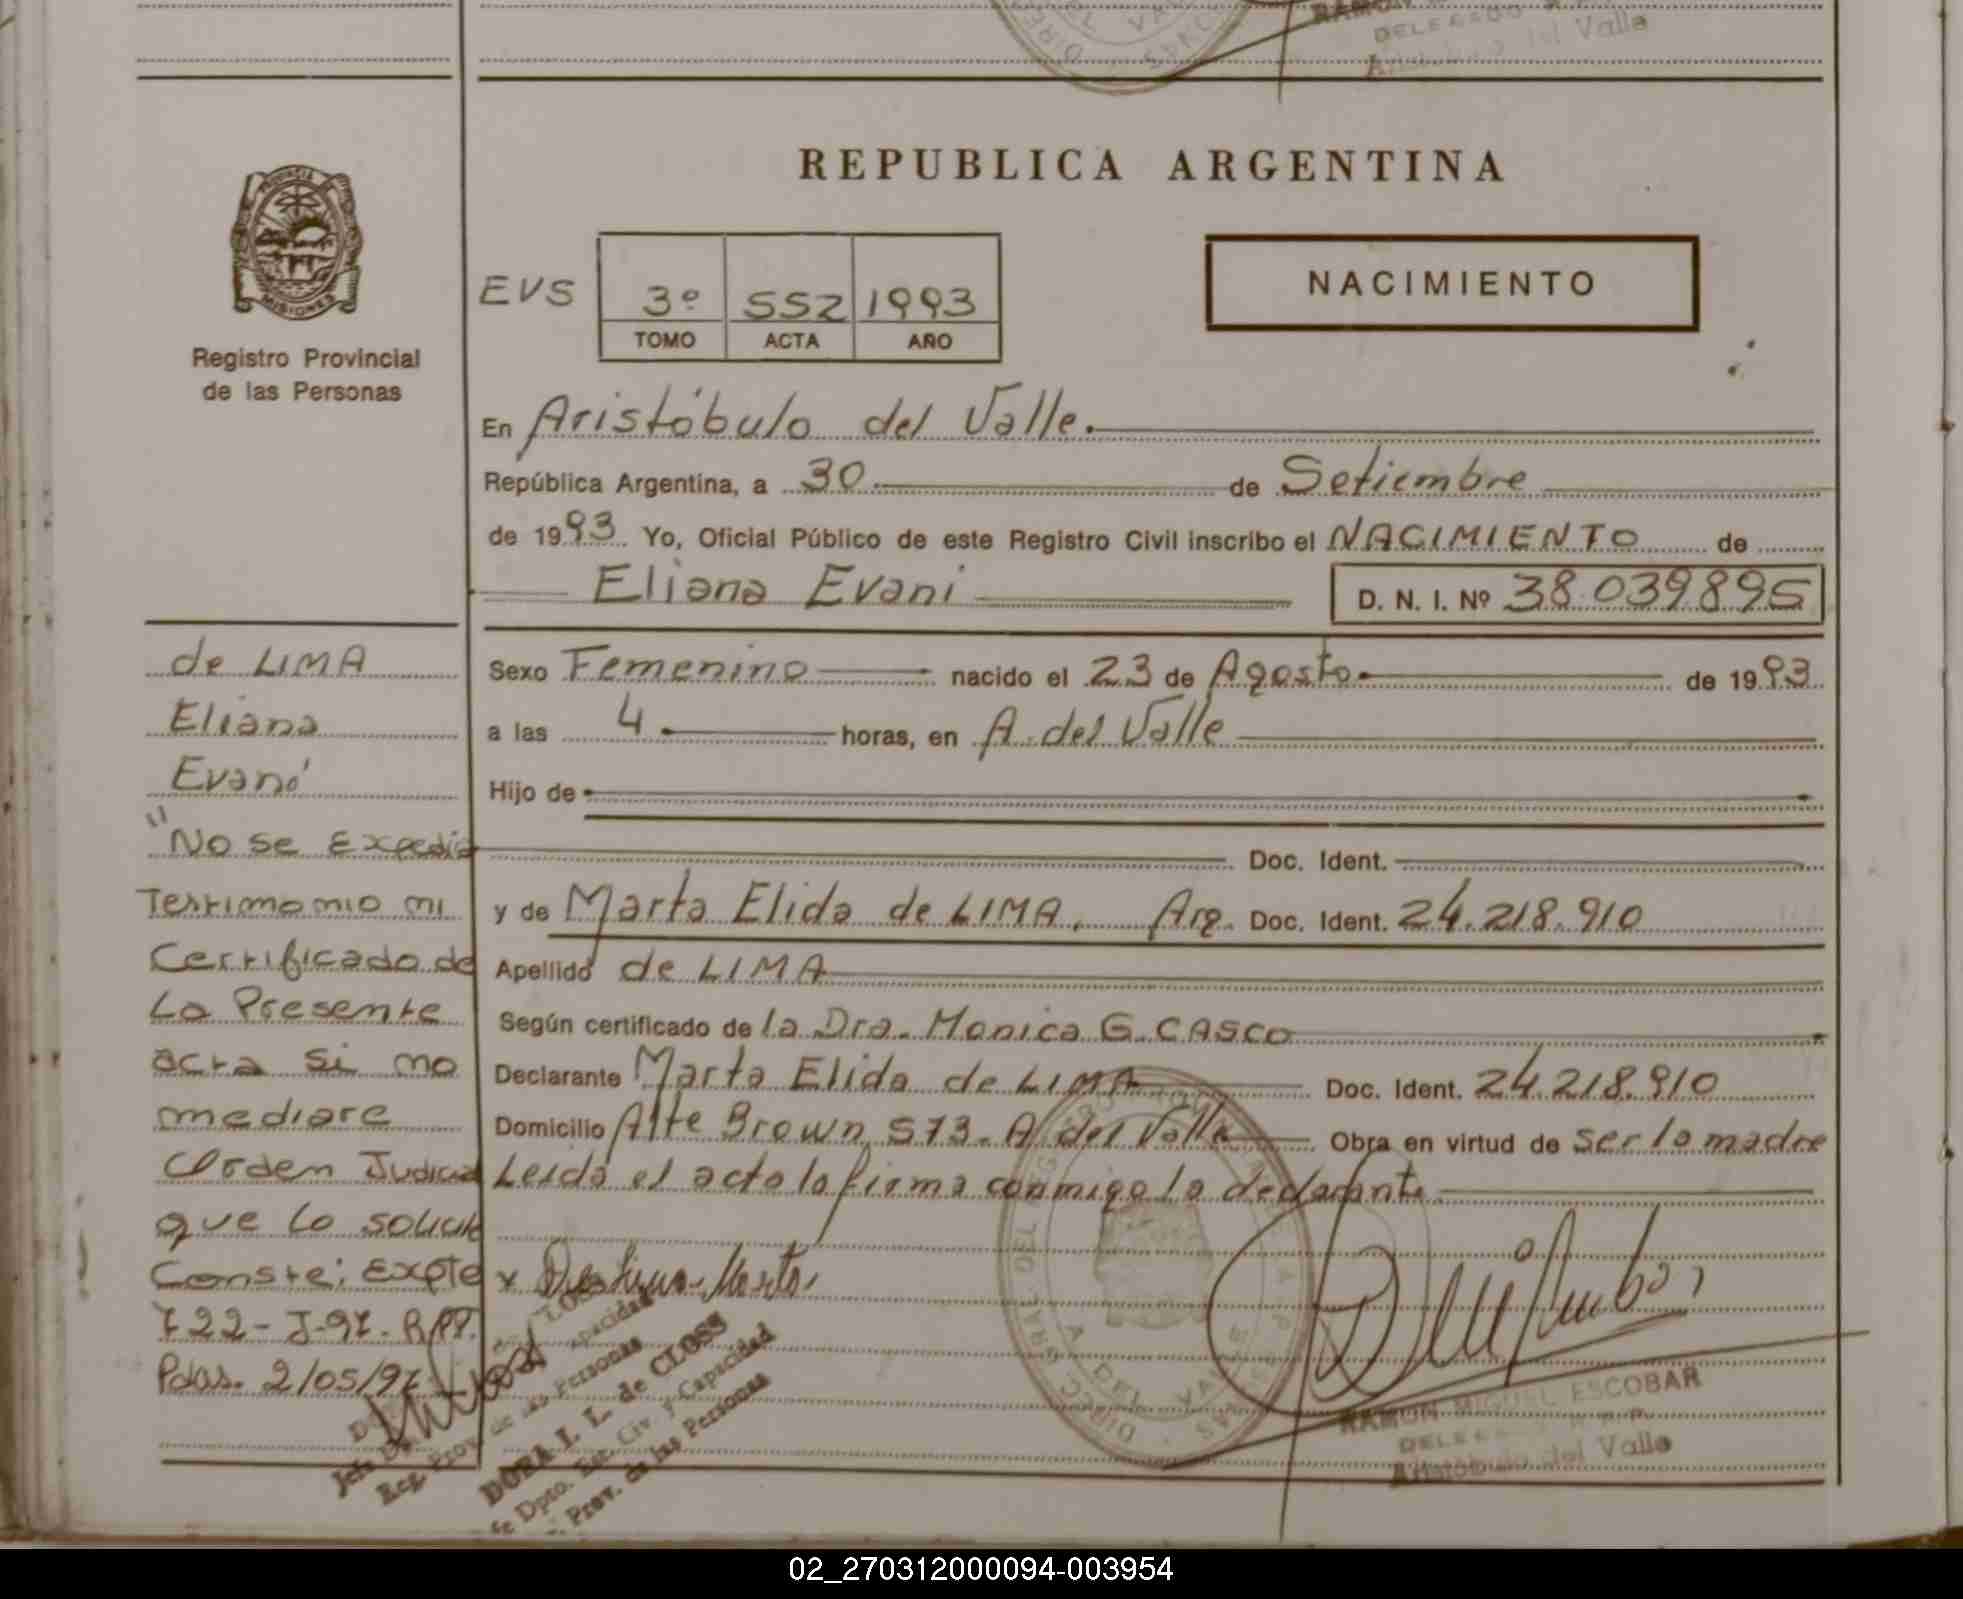 DELEGADO
Aristóbulo del Valle
REPUBLICA ARGENTINA
PROVINCIA
MISIONES
Registro Provincial
de las Personas
EVS
3º 552 1993
TOMO ACTA AÑO
NACIMIENTO
En Aristóbulo del Valle.
República Argentina, a 30 de Setiembre
de 1993 Yo, Oficial Público de este Registro Civil inscribo el NACIMIENTO de
Eliana Evani D. N. I. Nº 38.039.895
Sexo Femenino nacido el 23 de Agosto de 1993
a las 4 horas, en A. del Valle
Hijo de
Doc. Ident.
y de Marta Elida de LIMA. Arg. Doc. Ident. 24.218.910
Apellido de LIMA
Según certificado de la Dra. Monica G. CASCO
Declarante Marta Elida de LIMA Doc. Ident. 24.218.910
Domicilio Alte Brown 573. A del Valle Obra en virtud de ser la madre
Leida el acta la firma conmigo la declarante
de LIMA
Eliana
Evani
"No se Expedia
Testimonio ni
Certificado de
La Presente
acta si no
mediare
Orden Judicial
que lo solicite
Conste: Expte
722-J-97. R.P.P.
Pdas. 2/05/97
DORA I. L. de CLOSS
Prov. de las Personas
RAMON MIGUEL ESCOBAR
DELEGADO R.P.P.
Aristóbulo del Valle
02_270312000094-003954